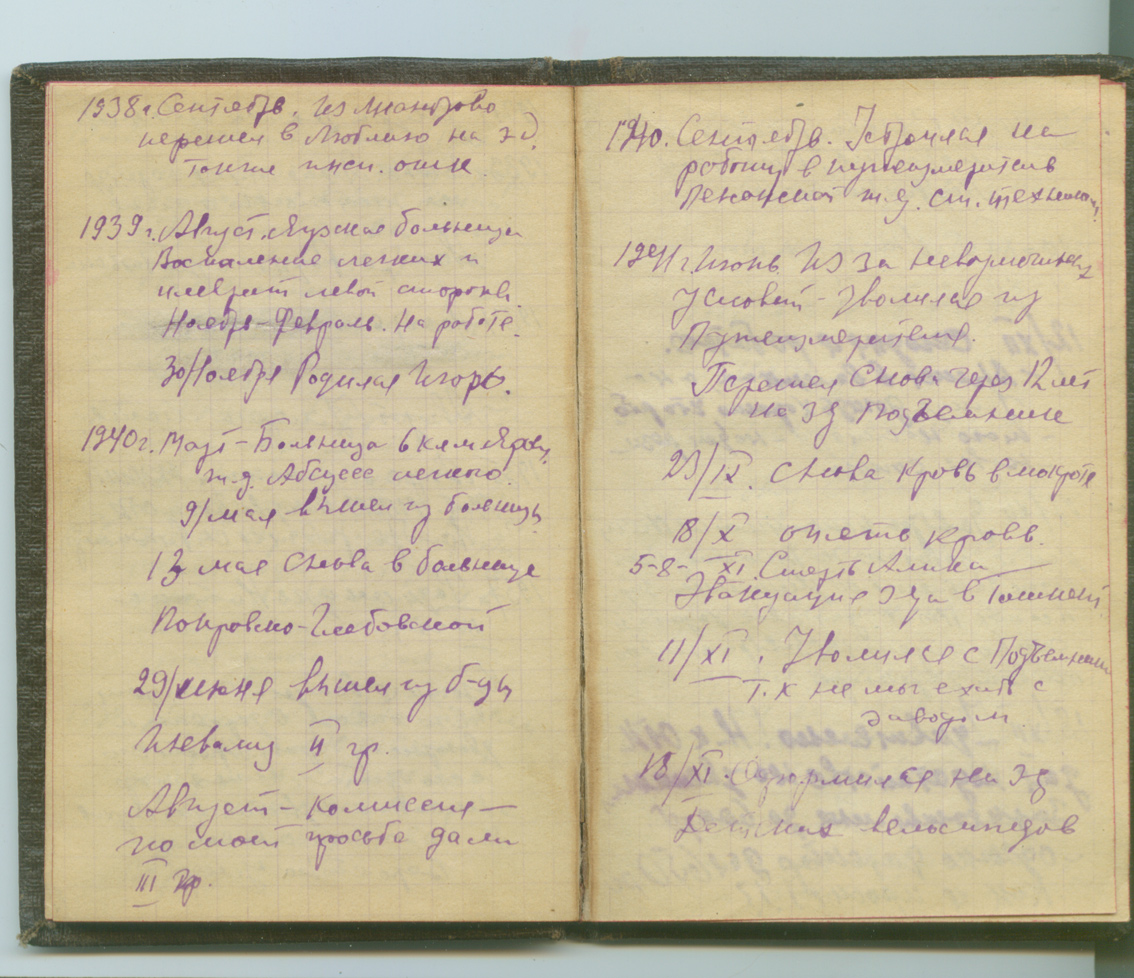 1938г. Сентябрь. Из
перешел в Люблино на зд.
инсп. отк.
1939г. Август. Яузская больница
Воспаление легких и
плеврит левой стороны.
Ноябрь–Февраль. На работе.
30/Ноября Родился Игорь.
1940г. Март – Больница
ж.д. Абсцесс легкого.
9/мая вышел из больницы
13 мая снова в больнице
Покровско-Глебовской
29/июня вышел из б-цы
Инвалид II гр.
Август – Комиссия –
по моей просьбе дали
III гр.
1940. Сентябрь. Устроился на
работу в путеизмеритель
ж.д. ст. техником.
1941г. Июнь Из за невозможных
Условий – Уволился из
Путеизмерителя.
Перешел Снова через 12 лет
на зд Подъемник
23/IX. снова Кровь в мокроте
18/X опять кровь.
5-8- XI. Смерть
Эвакуация з-да в Ташкент
11/XI. Уволился с Подъемника
т.к не мог ехать с
заводом.
18/XI. Оформился на зд
Детских велосипедов